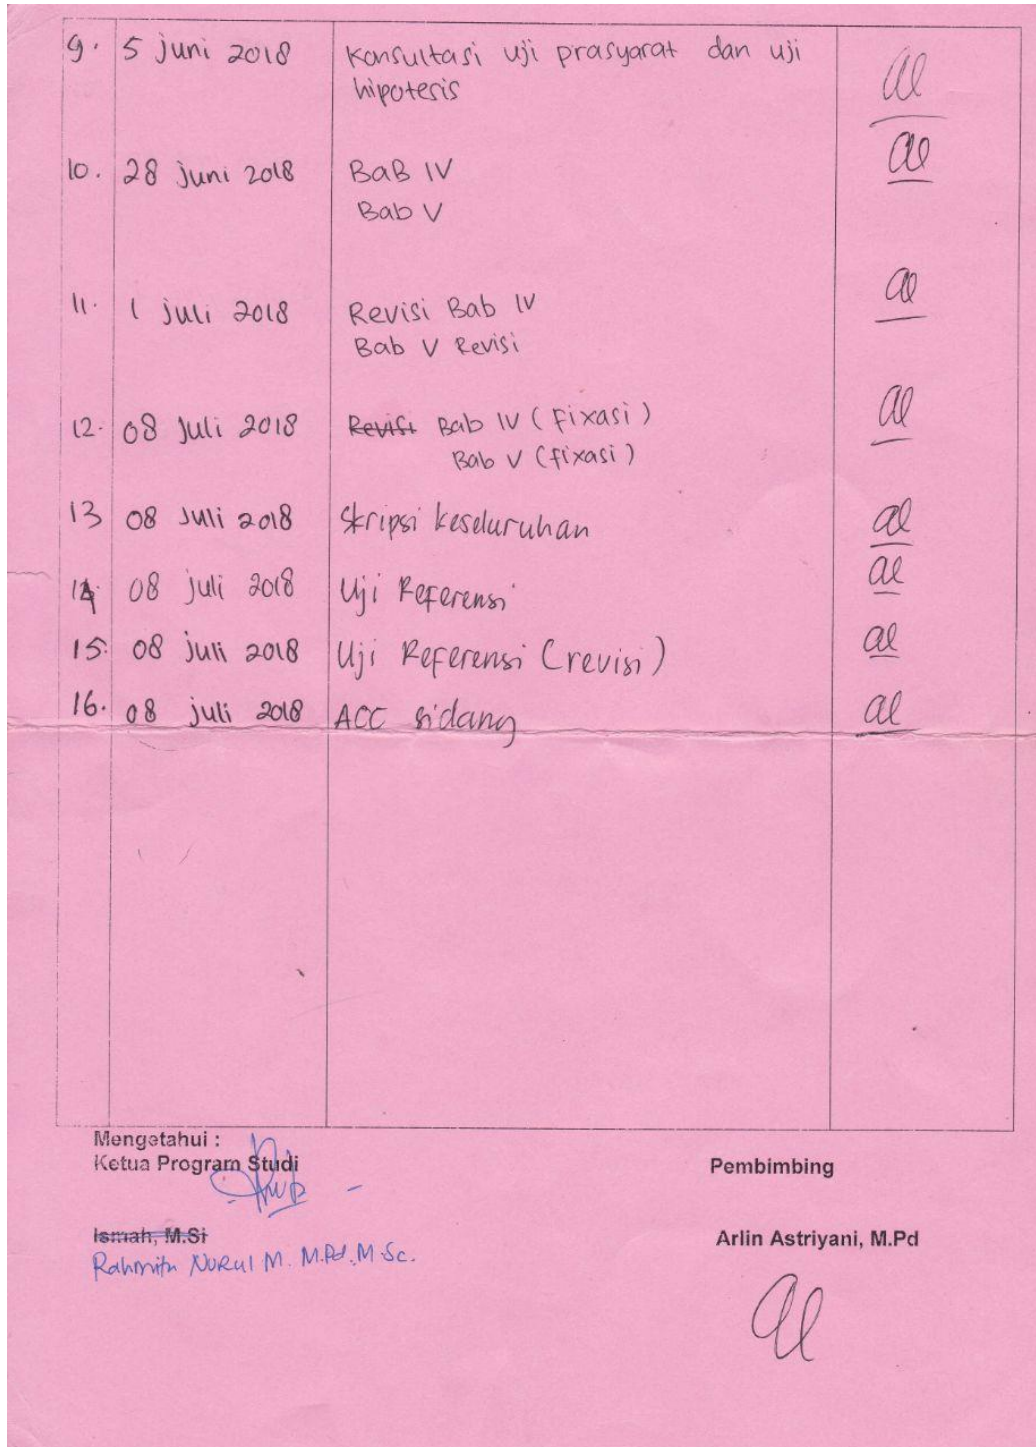 9. 5 juni 2018 Konsultasi uji prasyarat dan uji
hipotesis
10. 28 juni 2018 BaB IV
Bab V
11. 1 juli 2018 Revisi Bab IV
Bab V Revisi
12. 08 juli 2018 Revisi Bab IV (fixasi)
Bab V (fixasi)
13 08 Juli 2018 Skripsi keseluruhan
14. 08 juli 2018 Uji Referensi
15. 08 juli 2018 Uji Referensi (revisi)
16. 08 juli 2018 ACC sidang
Mengetahui :
Ketua Program Studi
Pembimbing
Ismah, M.Si
Arlin Astriyani, M.Pd
Rahmita Nurul M. M.Pd. M.Sc.